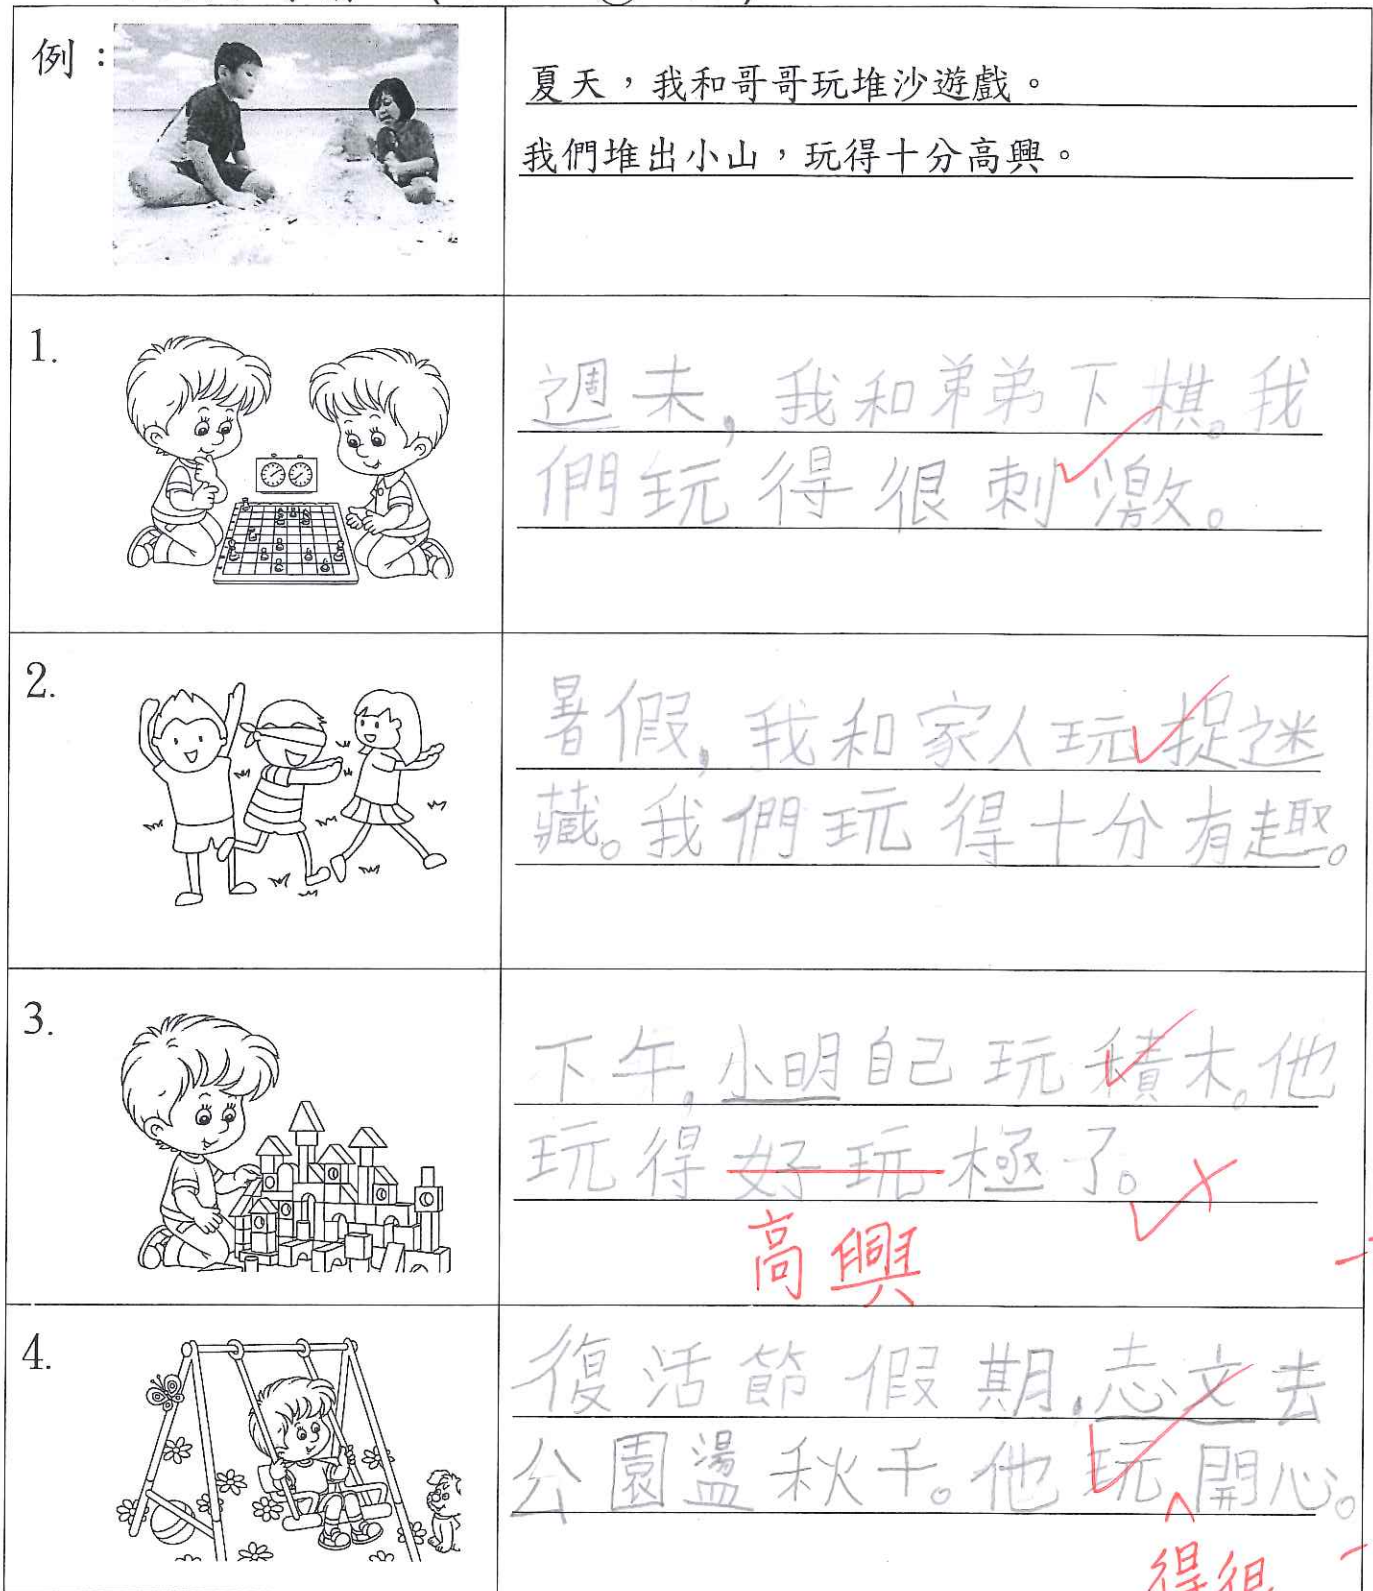 例：
夏天，我和哥哥玩堆沙遊戲。
我們堆出小山，玩得十分高興。
1.
週末，我和弟弟下棋。我
們玩得很刺激。
2.
暑假，我和家人玩捉迷
藏。我們玩得十分有趣。
3.
下午，小明自己玩積木。他
玩得好玩極了。
高興
4.
復活節假期，志文去
公園盪秋千。他玩開心。
得很